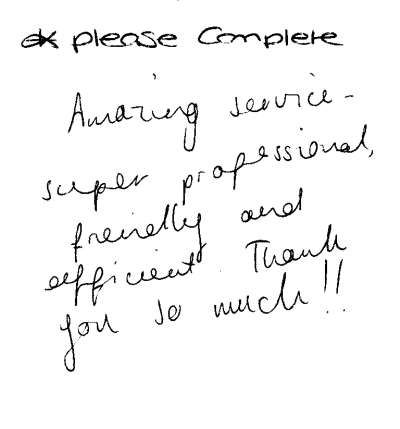 please Complete
Amazing service -
super professional,
freindly and
efficient. Thank
you so much!!